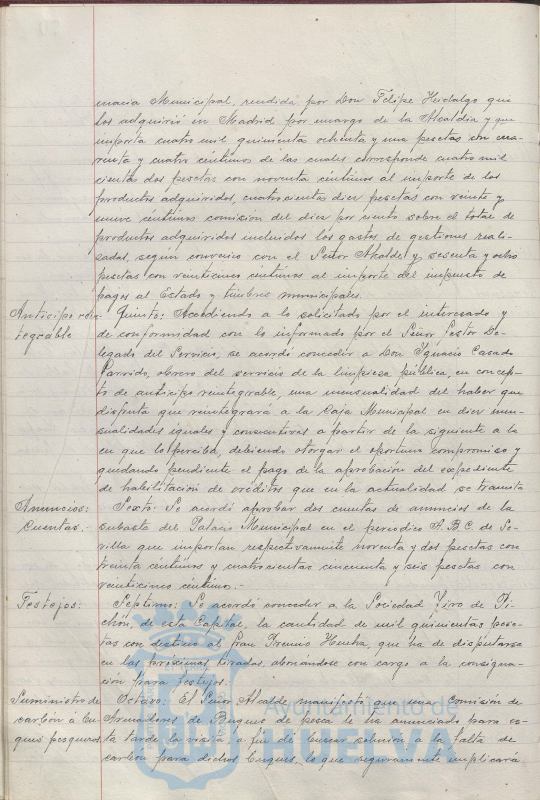 macia Municipal, rendida por Don Felipe Hidalgo que
los adquirió en Madrid por encargo de la Alcaldía y que
importa cuatro mil quinientas ochenta y una pesetas con cua-
renta y cuatro céntimos de las cuales corresponde cuatro mil
cientas dos pesetas con noventa céntimos al importe de los
productos adquiridos, cuatrocientas diez pesetas con veinte y
nueve céntimos comisión del diez por ciento sobre el total de
productos adquiridos incluidos los gastos de gestiones reali-
zadas, según convenio con el Señor Alcalde y sesenta y ocho
pesetas con veinticinco céntimos al importe del impuesto de
pagos al Estado y timbres municipales.
Anticipo rein-
tegrable
Quinto: Accediendo a lo solicitado por el interesado y
de conformidad con lo informado por el Señor Gestor De-
legado del Servicio, se acordó conceder a Don Ignacio Casado
Garrido, obrero del servicio de la limpieza pública, en concep-
to de anticipo reintegrable, una mensualidad del haber que
disfruta que reintegrará a la Caja Municipal en diez men-
sualidades iguales y consecutivas a partir de la siguiente a la
en que lo perciba, debiendo otorgar el oportuno compromiso y
quedando pendiente el pago de la aprobación del expediente
de habilitación de créditos que en la actualidad se tramita
Anuncios:
Cuentas.-
Sexto: Se acordó aprobar dos cuentas de anuncios de la
subasta del Palacio Municipal en el periodico A.B.C. de Se-
villa que importan respectivamente noventa y dos pesetas con
treinta céntimos y cuatrocientas cincuenta y seis pesetas con
veinticinco céntimo.-
Festejos:
Séptimo: Se acordó conceder a la Sociedad Tiro de Pi-
chón de esta Capital, la cantidad de mil quinientas pese-
tas con destino al Gran Premio Huelva, que ha de disputarse
en las próximas tiradas, abonandose con cargo a la consigna-
ción para festejos.
Suministro de
carbón a Bu-
ques pesqueros
Octavo: El Señor Alcalde manifestó que una Comisión de
Armadores de Buques de pesca le ha anunciado para es-
ta tarde la visita a fin de buscar solución a la falta de
carbón para dichos buques, lo que seguramente implicará
Ayuntamiento de
HUELVA